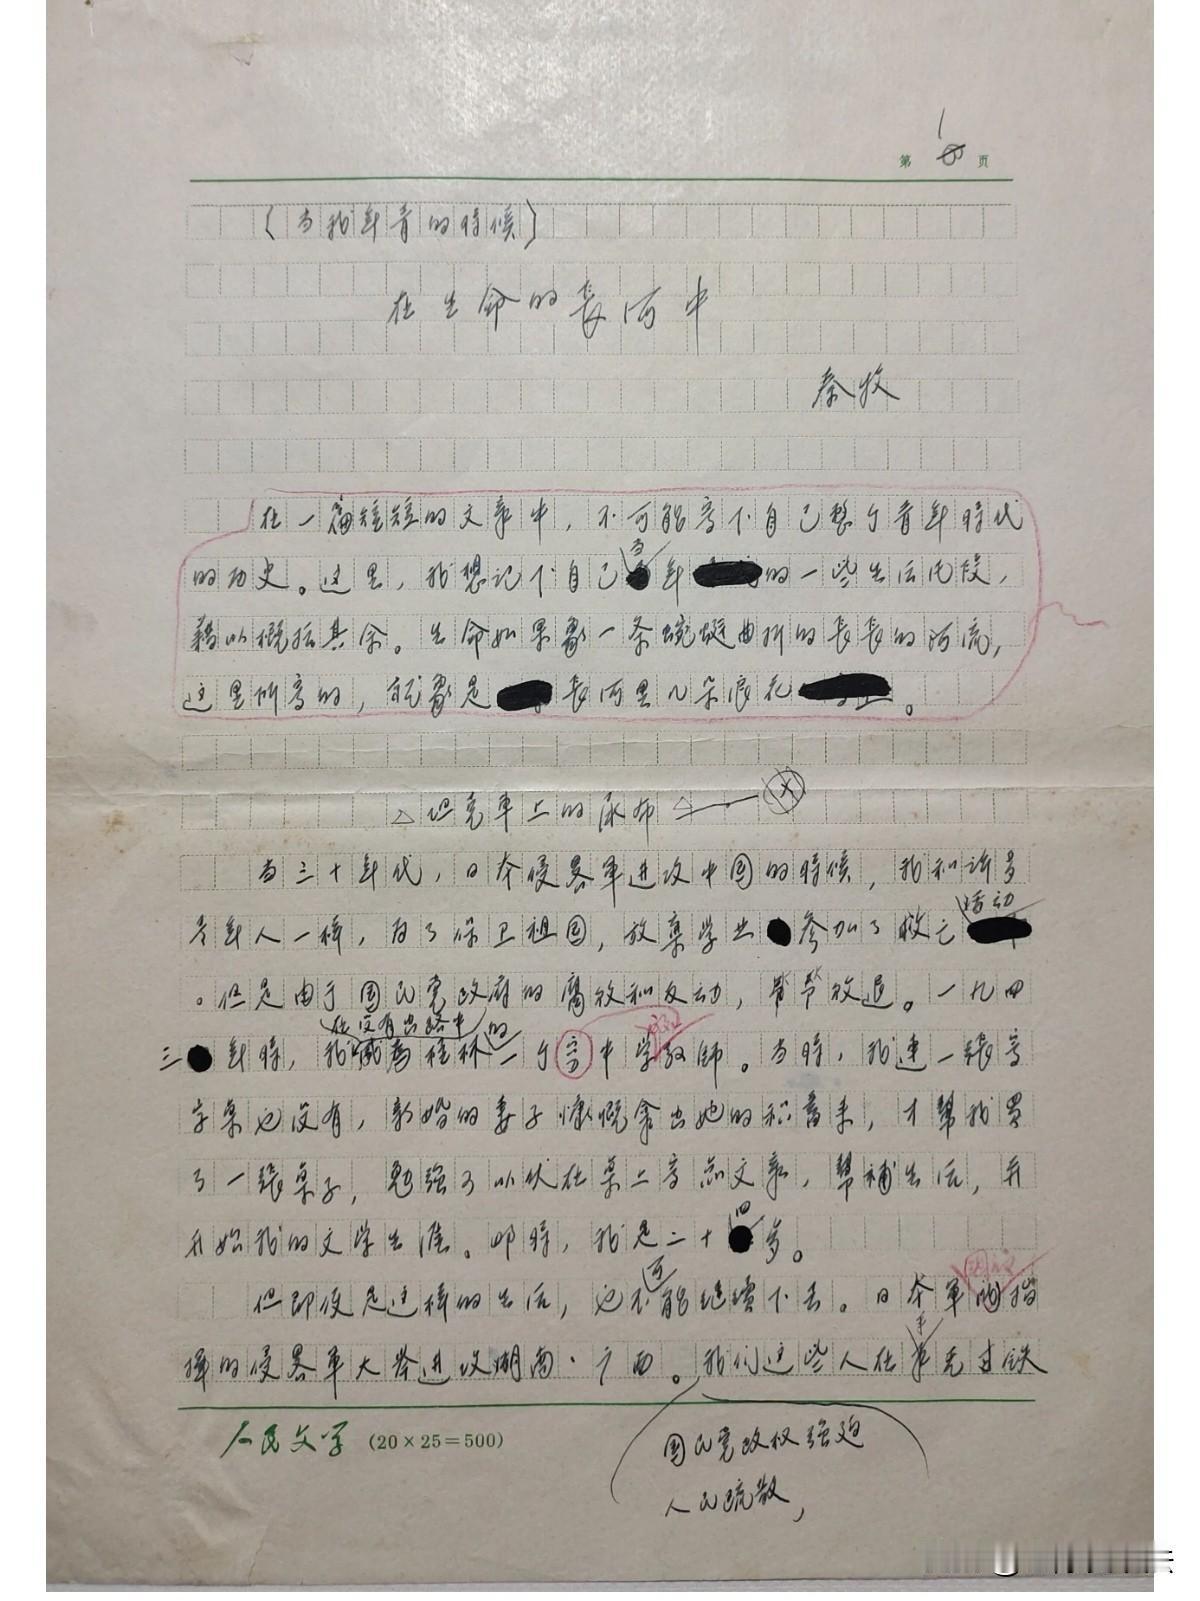 第 1 页
(当我年青的時候)
在生命的長河中
秦牧
在一篇短短的文章中，不可能写下自己整个青年時代
的历史。这里，我想记下自己当年的一些生活片段，
藉以概括其余。生命如果象一条蜿蜒曲折的長長的河流，
这里所写的，就象是長河里几朵浪花。
△坦克車上的尿布
当三十年代，日本侵畧軍进攻中国的時候，我和许多
青年人一樣，为了保卫祖国，放棄学业参加了救亡活动
。但是由于国民党政府的腐败和反动，节节败退。一九四
三年時，我在没有出路中成为桂林的一个中学教師。当時，我連一張写
字桌也没有，新婚的妻子慷慨拿出她的积蓄来，才幫我買
了一張桌子，勉強可以伏在桌上写点文章，幫補生活，并
开始我的文学生涯。那時，我是二十四岁。
但即使是这樣的生活，也不可能继續下去。日本軍阀指
揮的侵畧軍大举进攻湖南、广西。我们这些人在手无寸铁
国民党政权強迫
人民疏散，
人民文学 (20×25=500)